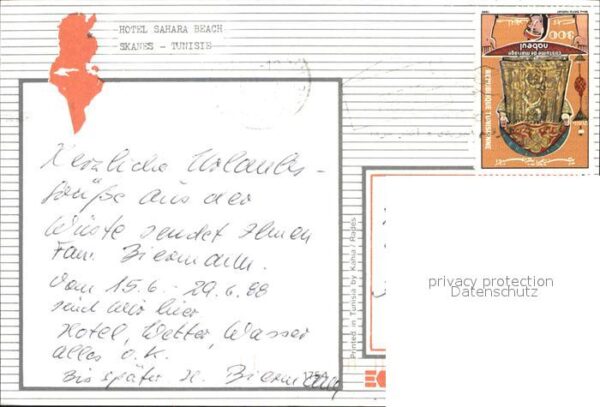 HOTEL SAHARA BEACH
SKANES - TUNISIE
Herzliche Urlaubs-
grüße aus der
Wüste sendet Ihnen
Fam. Biermann.
Vom 15.6. - 29.6.88
sind wir hier
Hotel, Wetter, Wasser
alles o.K.
Bis später H. Biermann
Printed in Tunisia by Kahia / Rades
300
costume de mariage
nabeul
REPUBLIQUE TUNISIENNE
privacy protection
Datenschutz